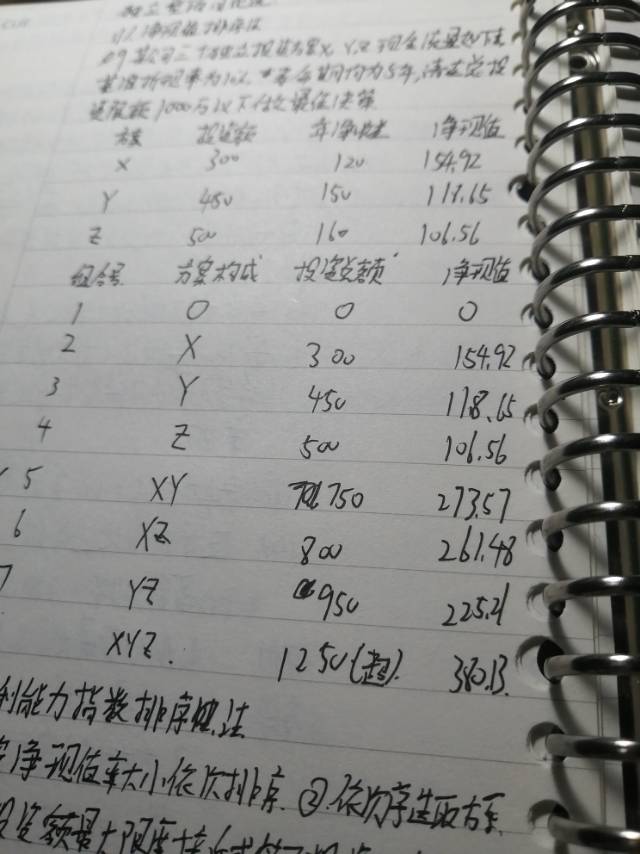 净现值排序法
某公司三个独立投资方案X,Y,Z 现金流量如下表
基准折现率为10%,寿命期均为5年,请在总投
资限额1000万以下作出最佳决策
方案 投资额 年净收益 净现值
X 300 120 154.92
Y 450 150 118.65
Z 500 160 106.56
组合号 方案构成 投资总额 净现值
1 0 0 0
2 X 300 154.92
3 Y 450 118.65
4 Z 500 106.56
✓5 XY 750 273.57
6 XZ 800 261.48
7 YZ 950 225.21
XYZ. 1250(超). 380.13.
利能力指数排序法
净现值率大小依次排序.②依次序选取方案
投资额最大限度